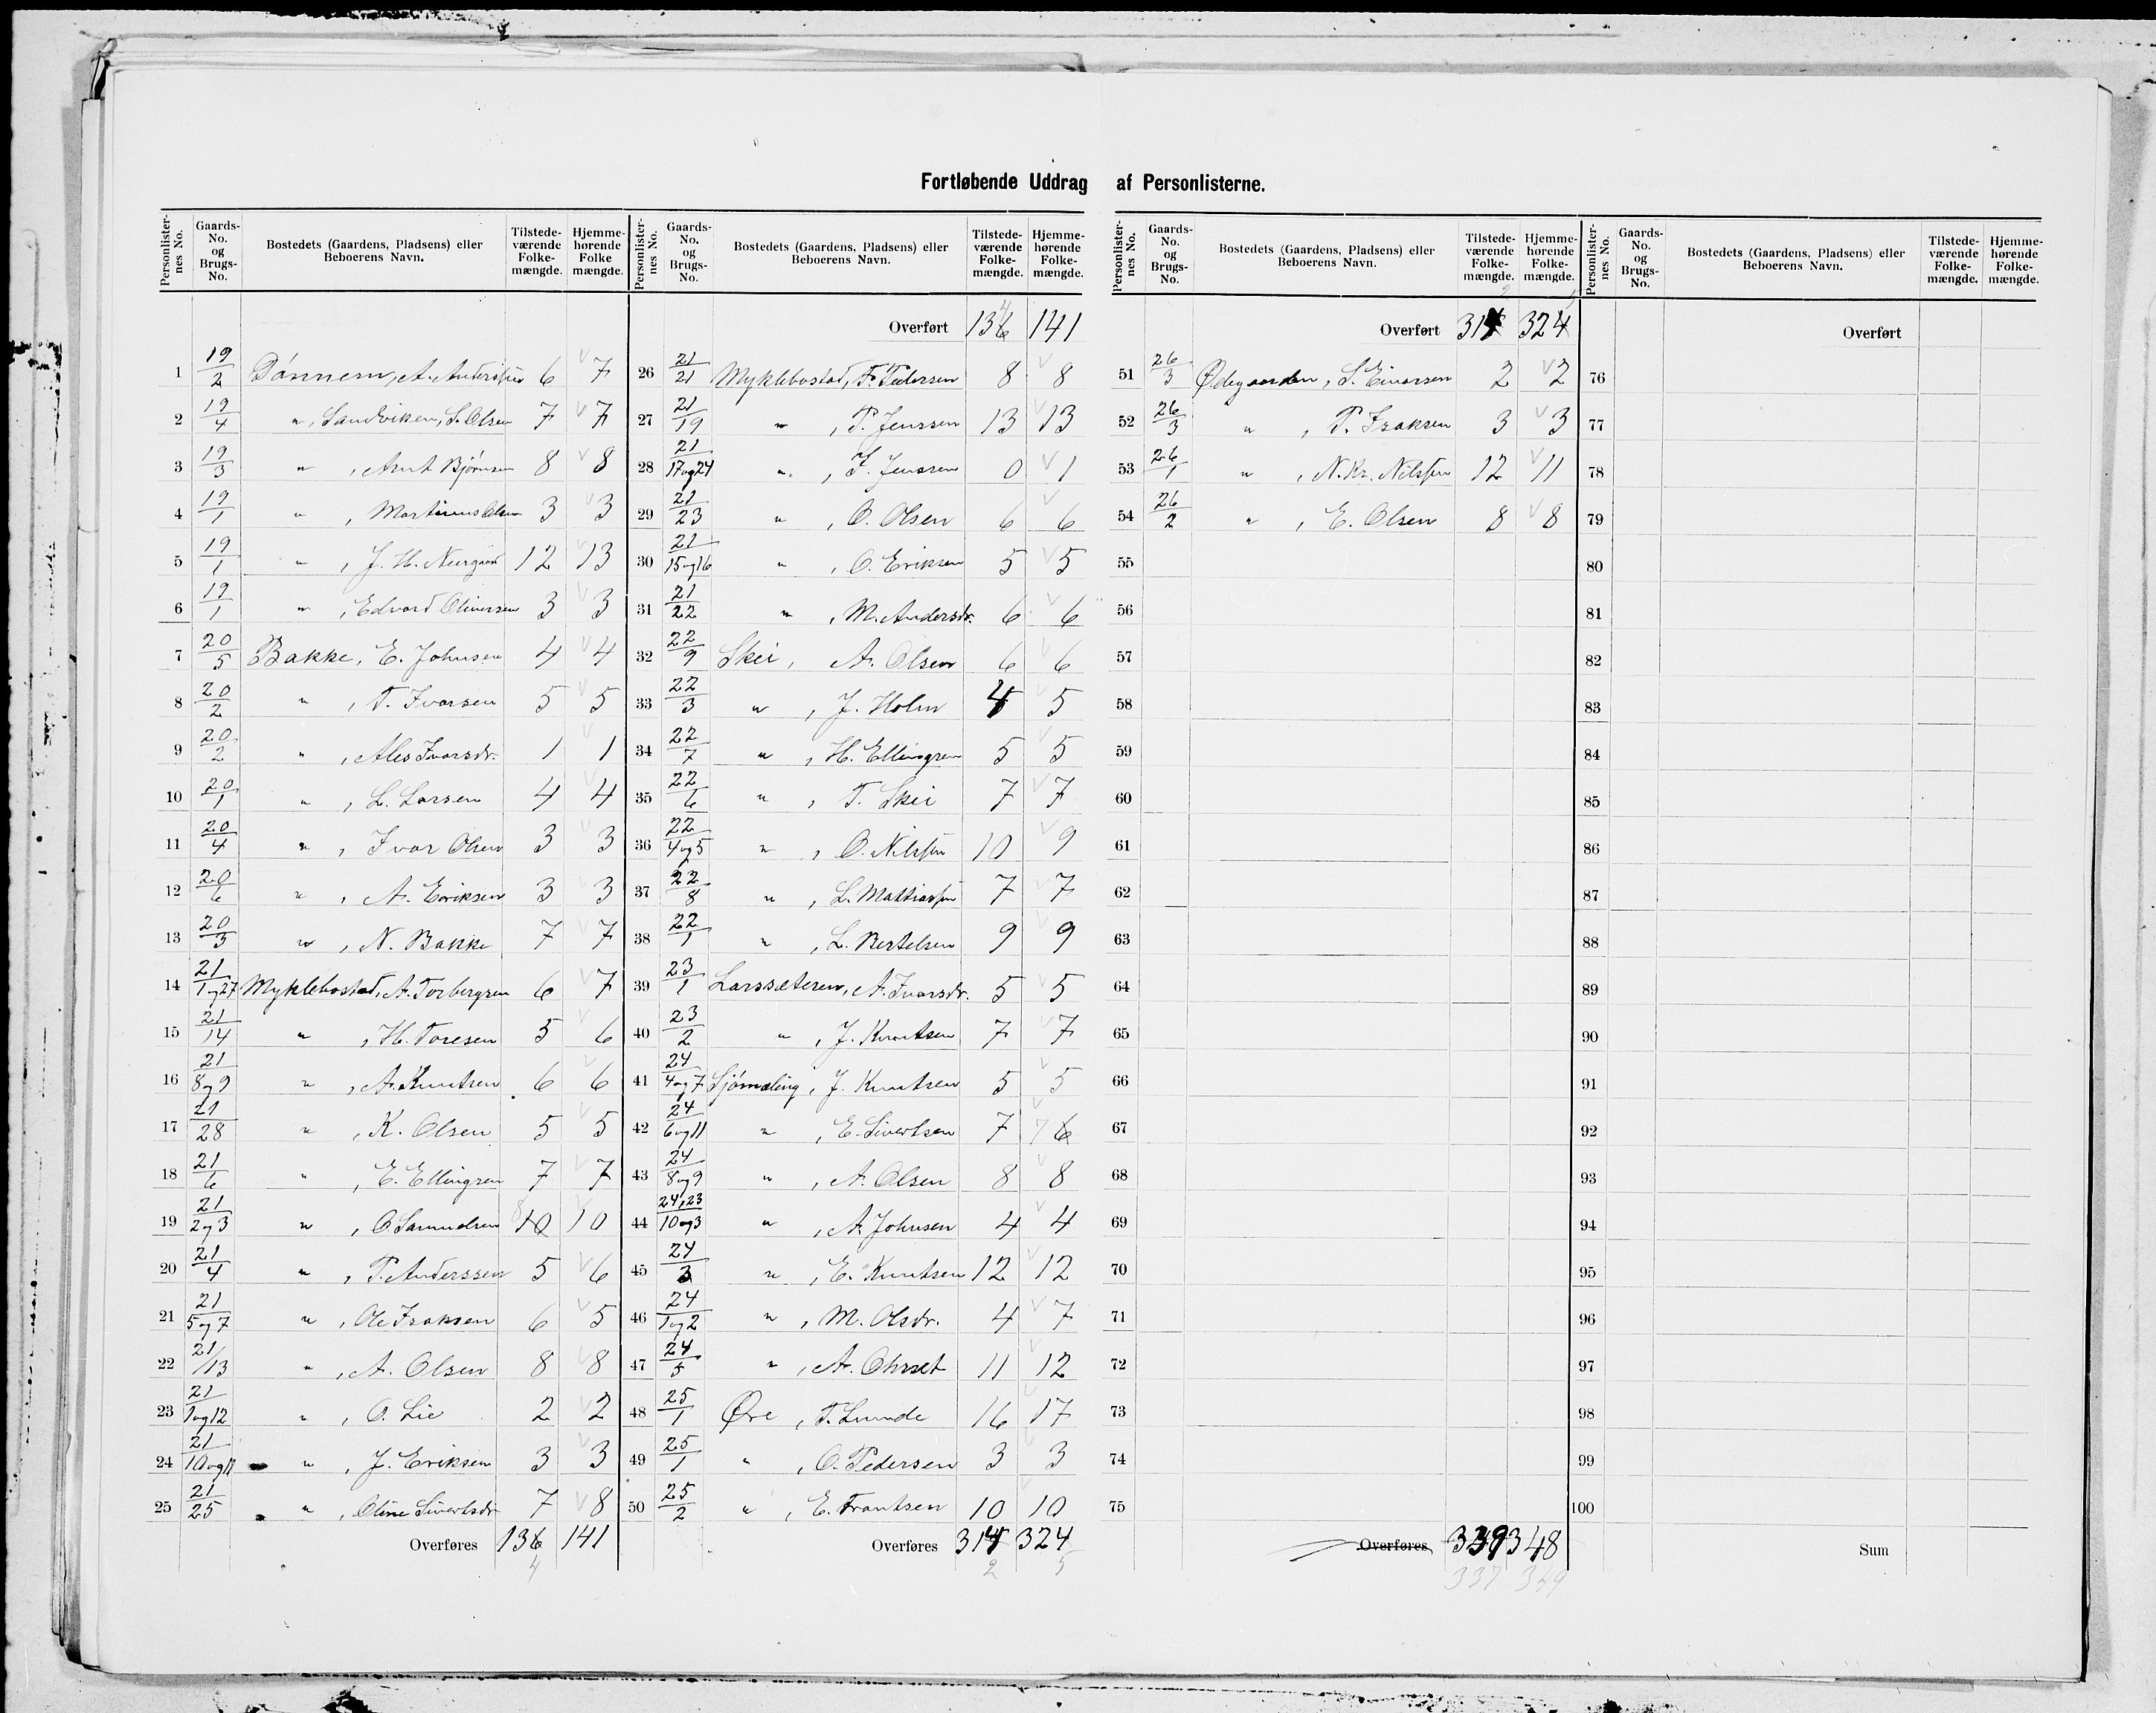 Fortløbende Uddrag af Personlisterne.
Personlister-nes No. Gaards-No. og Brugs-No. Bostedets (Gaardens, Pladsens) eller Beboerens Navn. Tilstede-værende Folke-mængde. Hjemme-hørende Folke mængde.
1 19/2 Dønnem, A. Anderssen 6 7
2 19/4 " , Sandviken, S. Olsen 7 7
3 19/3 " , Arnt Bjørnsen 8 8
4 19/1 " , Martinus Olsen 3 3
5 19/1 " , J. H. Neergaard 12 13
6 19/1 " , Edvard Oliversen 3 3
7 20/5 Bakke, E. Johnsen 4 4
8 20/2 " , T. Ivarsen 5 5
9 20/2 " , Ales Ivarsdr. 1 1
10 20/1 " , L. Larsen 4 4
11 20/4 " , Ivar Olsen 3 3
12 20/6 " , A. Eriksen 3 3
13 20/3 " , N. Bakke 7 7
14 21/1og27 Myklebostad, A. Torbergsen 6 7
15 21/14 " , H. Toresen 5 6
16 21/8og9 " , A. Knutsen 6 6
17 21/28 " , K. Olsen 5 5
18 21/6 " , E. Ellingsen 7 7
19 21/2og3 " , O. Samuelsen 8 10 10
20 21/4 " , P. Anderssen 5 6
21 21/5og7 " , Ole Isaksen 6 5
22 21/13 " , A. Olsen 8 8
23 21/1og12 " , O. Lie 2 2
24 21/10og11 " , J. Eriksen 3 3
25 21/25 " , Oline Sivertsdr. 7 8
Overføres 136 141
4
Personlister-nes No. Gaards-No. og Brugs-No. Bostedets (Gaardens, Pladsens) eller Beboerens Navn. Tilstede-værende Folke-mængde. Hjemme-hørende Folke-mængde.
4
Overført 136 141
26 21/21 Myklebostad, F. Pedersen 8 8
27 21/19 " , P. Jenssen 13 13
28 21/17og24 " , J. Jenssen 0 1
29 21/23 " , O. Olsen 6 6
30 21/15og16 " , O. Eriksen 5 5
31 21/22 " , M. Andersdr. 6 6
32 22/9 Skei, A. Olsen 6 6
33 22/3 " , J. Holm 4 5
34 22/7 " , H. Ellingsen 5 5
35 22/6 " , T. Skei 7 7
36 22/4og5 " , O. Nilssen 10 9
37 22/8 " , L. Mathiassen 7 7
38 22/1 " , L. Bertelsen 9 9
39 23/1 Larssæteren, A. Ivarsdr. 5 5
40 23/2 " , J. Knutsen 7 7
41 24/4og7 Sjømæling, J. Knutsen 5 5
42 24/6og11 " , E. Sivertsen 7 7 6
43 24/8og9 " , A. Olsen 8 8
44 24,23/10og3 " , A. Johnsen 4 4
45 24/3 " , E. Knutsen 12 12
46 24/1og2 " , M. Olsdr. 4 7
47 24/5 " , A. Ohrset 11 12
48 25/1 Øre , T. Lunde 16 17
49 25/1 " , O. Pedersen 3 3
50 25/2 " , E. Frantsen 10 10
Overføres 314 324
2 5
Personlister-nes No. Gaards-No. og Brugs-No. Bostedets (Gaardens, Pladsens) eller Beboerens Navn. Tilstede-værende Folke-mængde. Hjemme-hørende Folke-mængde.
Overført 314 324
51 26/3 Ødegaarden, S. Einarsen 2 2
52 26/3 " , P. Isaksen 3 3
53 26/1 " , N. Kr. Nilssen 12 11
54 26/2 " , E. Olsen 8 8
55
56
57
58
59
60
61
62
63
64
65
66
67
68
69
70
71
72
73
74
75
Overføres 339 348
337 349
Personlister-nes No. Gaards-No. og Brugs-No. Bostedets (Gaardens, Pladsens) eller Beboerens Navn. Tilstede-værende Folke-mængde. Hjemme-hørende Folke-mængde.
Overført
76
77
78
79
80
81
82
83
84
85
86
87
88
89
90
91
92
93
94
95
96
97
98
99
100
Sum